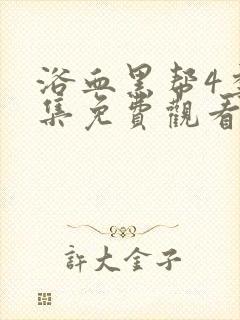 浴血黑帮4季
集免費觀看
許大金子